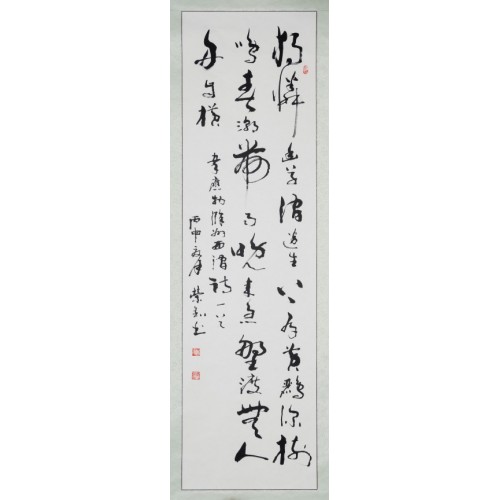 獨憐幽草澗邊生上有黃鸝深樹
鳴春潮帶雨晚來急野渡無人
舟自橫
韋應物滁州西澗詩一首
丙申書